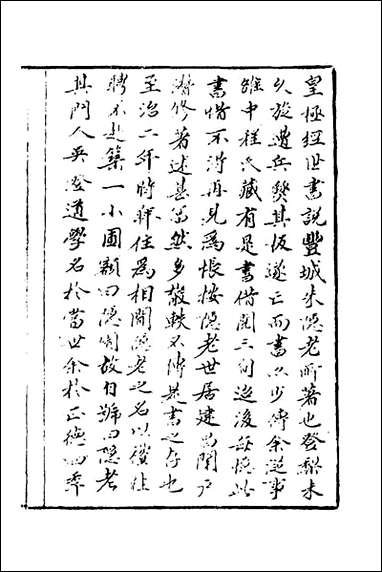 皇極經世書說豐城朱隱老所著也登梨未
久旋遭兵燹其板遂亡而書以少傳余從事
雒中程氏藏有是書借閱三旬迨後每憶此
書惜不得再見為悵按隱老世居建昌閉戶
潛修著述甚富然多散軼不傳是書之存也
至治二年時拜住為相聞隱老之名以禮往
聘不起築一小圃顏曰隱圃故自號曰隱老
其門人吳澄道學名於當世余於正德四年